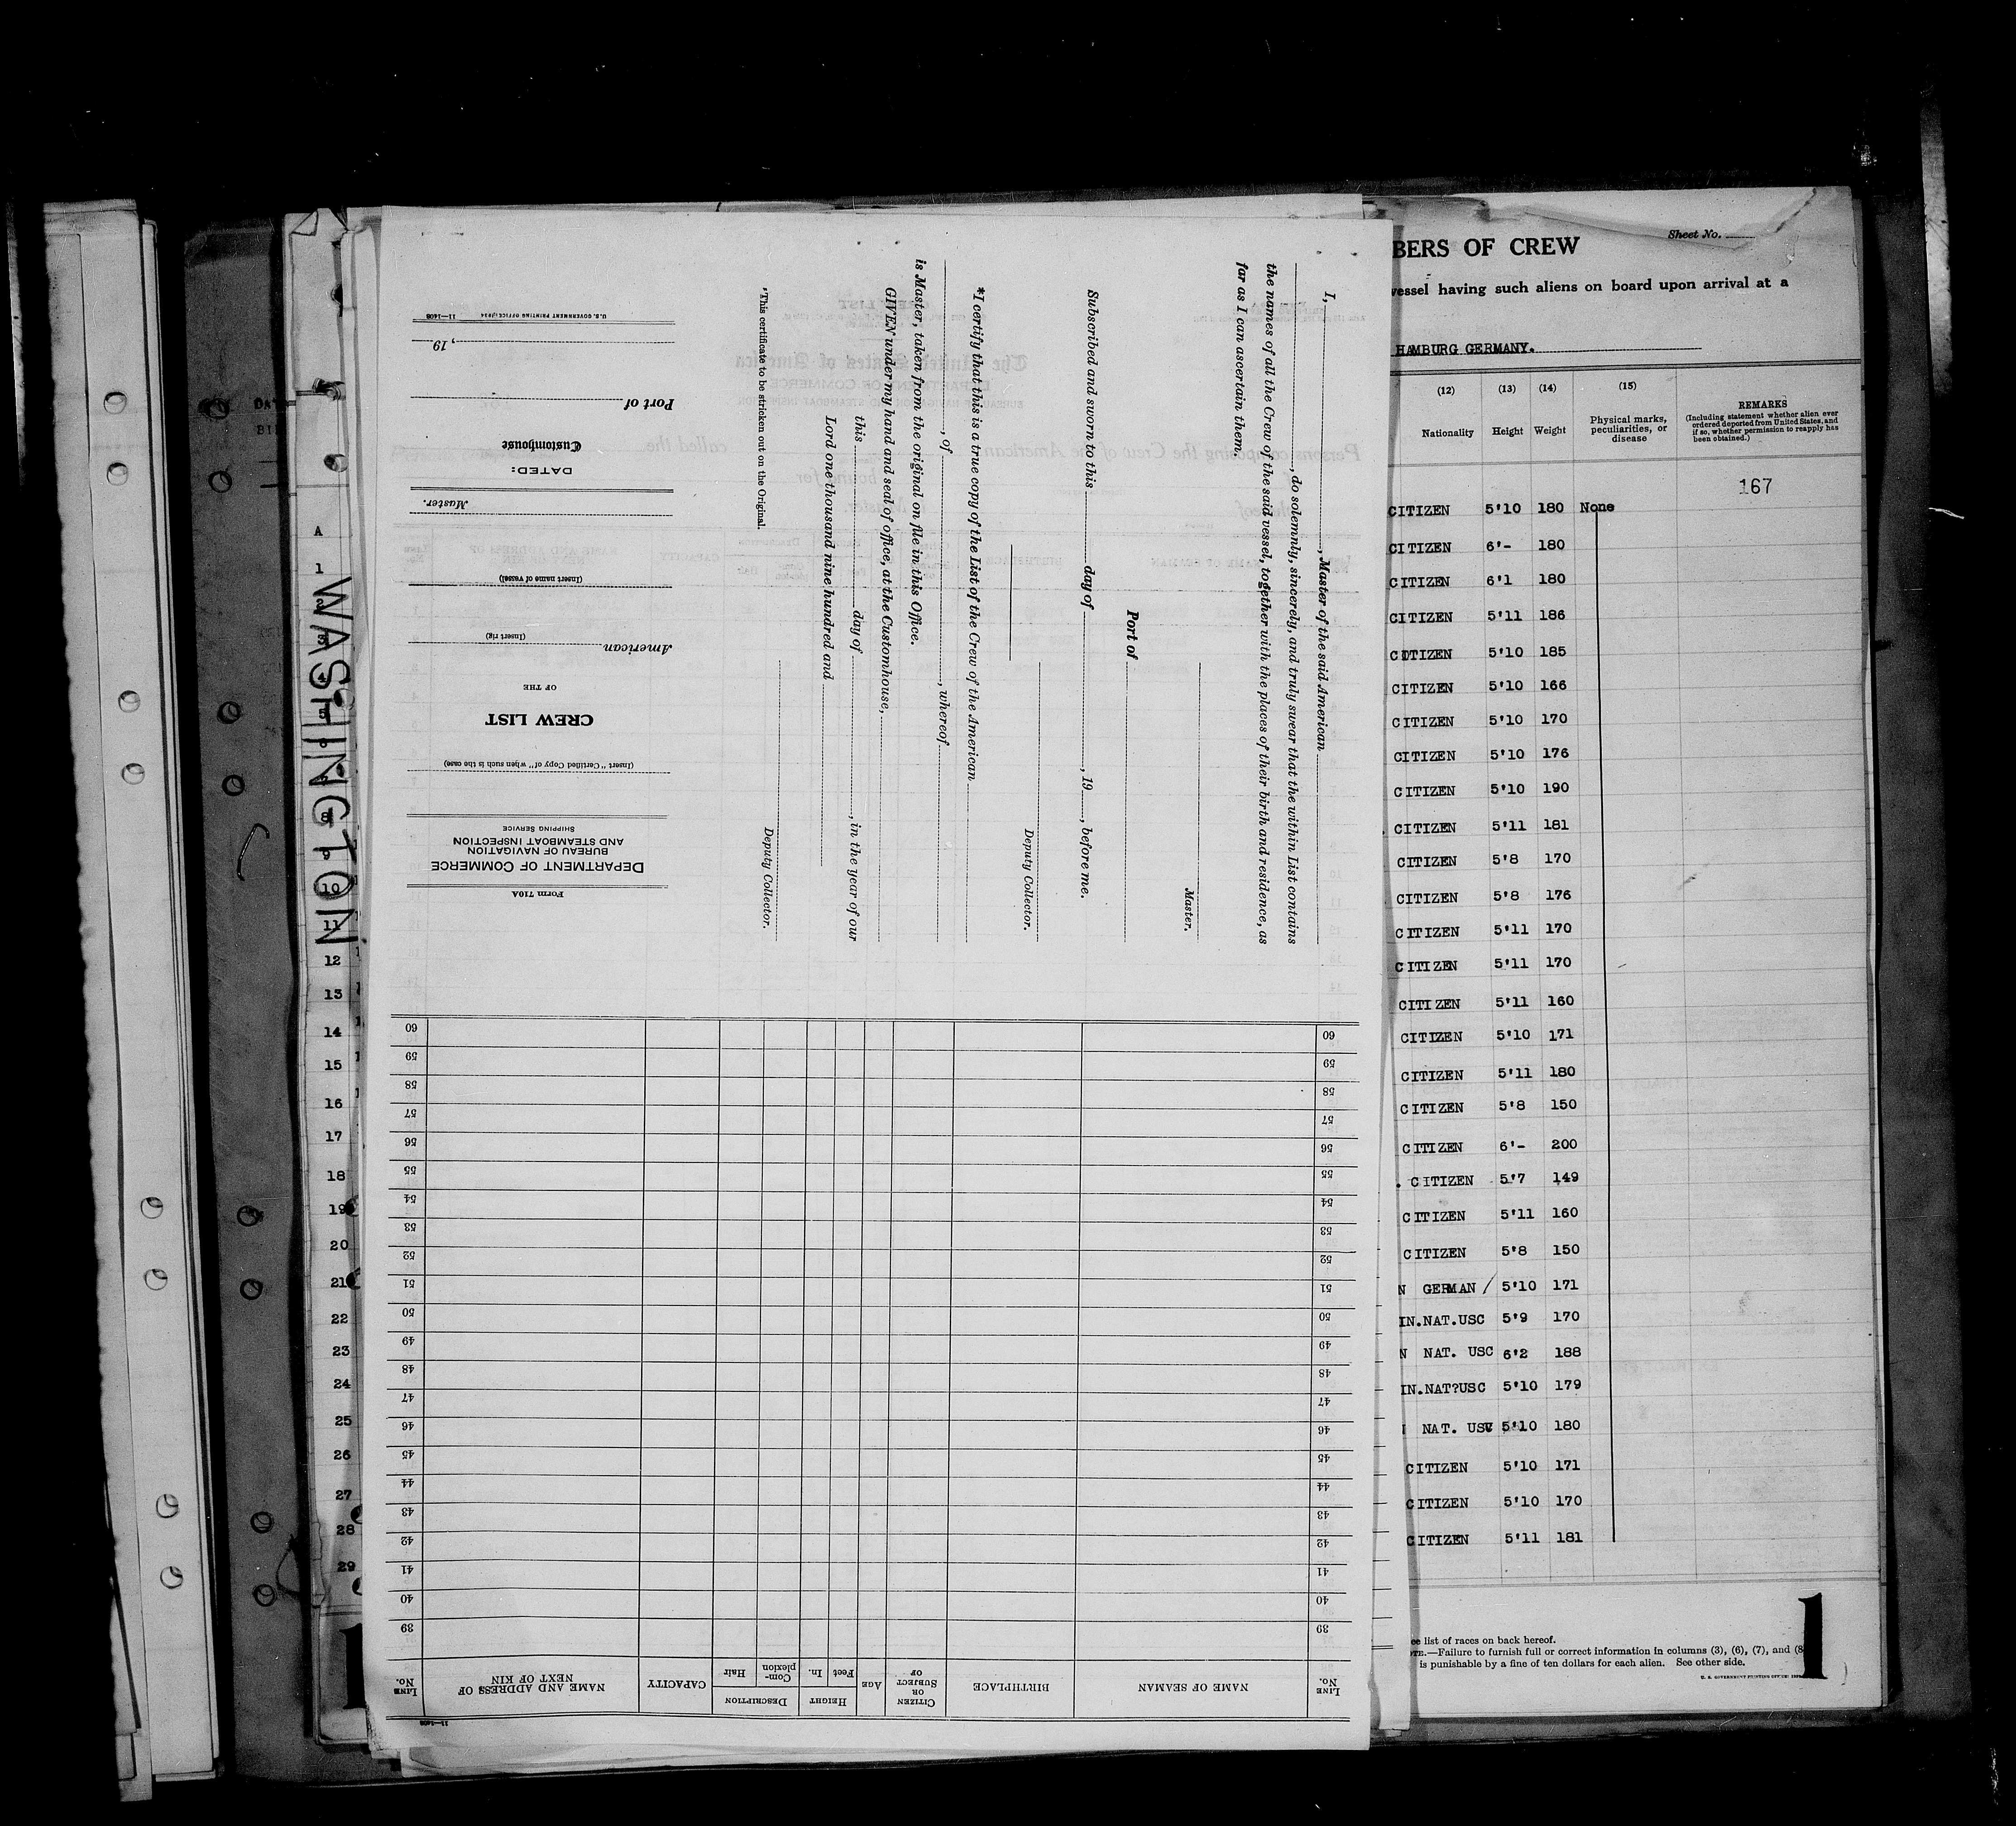 BERS OF CREW
Sheet No.
vessel having such aliens on board upon arrival at a
HAMBURG GERMANY.
(12) (13) (14) (15)
Nationality Height Weight Physical marks, peculiarities, or disease
REMARKS
(Including statement whether alien ever
ordered deported from United States, and
if so, whether permission to reapply has
been obtained.)
167
CITIZEN 5'10 180 None
CITIZEN 6'- 180
CITIZEN 6'1 180
CITIZEN 5'11 186
CITIZEN 5'10 185
CITIZEN 5'10 166
CITIZEN 5'10 170
CITIZEN 5'10 176
CITIZEN 5'10 190
CITIZEN 5'11 181
CITIZEN 5'8 170
CITIZEN 5'8 176
CITIZEN 5'11 170
CITIZEN 5'11 170
CITIZEN 5'11 160
CITIZEN 5'10 171
CITIZEN 5'11 180
CITIZEN 5'8 150
CITIZEN 6'- 200
. CITIZEN 5'7 149
CITIZEN 5'11 160
CITIZEN 5'8 150
N GERMAN / 5'10 171
IN.NAT.USC 5'9 170
N NAT. USC 6'2 188
IN.NAT?USC 5'10 179
NAT. USC 5'10 180
CITIZEN 5'10 171
CITIZEN 5'10 170
CITIZEN 5'11 181
ee list of races on back hereof.
OTE.—Failure to furnish full or correct information in columns (3), (6), (7), and (8
is punishable by a fine of ten dollars for each alien. See other side.
1
I, , Master of the said American
, do solemnly, sincerely, and truly swear that the within List contains
the names of all the Crew of the said vessel, together with the places of their birth and residence, as
far as I can ascertain them.
Master.
Port of
Subscribed and sworn to this day of , 19 , before me.
Deputy Collector.
*I certify that this is a true copy of the List of the Crew of the American
, of , whereof
is Master, taken from the original on file in this Office.
GIVEN under my hand and seal of office, at the Customhouse,
this day of , in the year of our
Lord one thousand nine hundred and
Deputy Collector.
*This certificate to be stricken out on the Original.
Form 710A
DEPARTMENT OF COMMERCE
BUREAU OF NAVIGATION
AND STEAMBOAT INSPECTION
SHIPPING SERVICE
(Insert "Certified Copy of" when such is the case)
CREW LIST
OF THE
American
(Insert rig)
(Insert name of vessel)
Master.
DATED:
Customhouse
Port of
, 19
U.S. GOVERNMENT PRINTING OFFICE: 1934 11—1408
11—1408
LINE No. NAME OF SEAMAN BIRTHPLACE CITIZEN OR SUBJECT OF AGE HEIGHT Feet In. DESCRIPTION Complexion Hair CAPACITY NAME AND ADDRESS OF NEXT OF KIN LINE No.
39 39
40 40
41 41
42 42
43 43
44 44
45 45
46 46
47 47
48 48
49 49
50 50
51 51
52 52
53 53
54 54
55 55
56 56
57 57
58 58
59 59
60 60
WASHINGTON
A
1
2
3
4
5
6
8
9
10
11
12
13
14
15
16
17
18
19
20
21
22
23
24
25
26
27
28
29
1